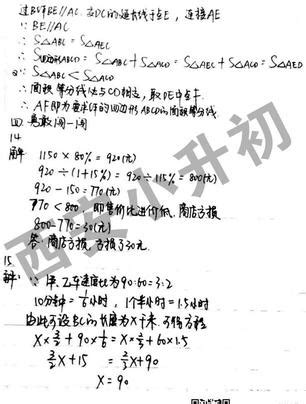 过B作BE//AC,交DC的延长线于点E,连接AE
∵ BE//AC
∴ S△ABC = S△AEC
∴ S四边形ABCD = S△ABC + S△ACD = S△AEC + S△ACD = S△AED
∵ S△ABC < S△ACD
∴ 面积等分线必与CD相交,取DE中点F
∴ AF即为要求作的四边形ABCD的面积等分线
四 勇敢闯一闯
14
解 1150 × 80% = 920(元)
920 ÷ (1+15%) = 920 ÷ 115% = 800(元)
920 - 150 = 770(元)
770 < 800 即售价比进价低 商店亏损
800-770=30(元)
答 商店亏损 亏损了30元
15
解 ∵ 甲、乙车速度比为90:60=3:2
10分钟 = 1/6小时, 1个半小时 = 1.5小时
由此可设BC的长度为X千米 可得方程
X × 3/2 + 90 × 1/6 = X × 2/3 + 60 × 1.5
3/2 X + 15 = 2/3 X + 90
X = 90
西安小升初